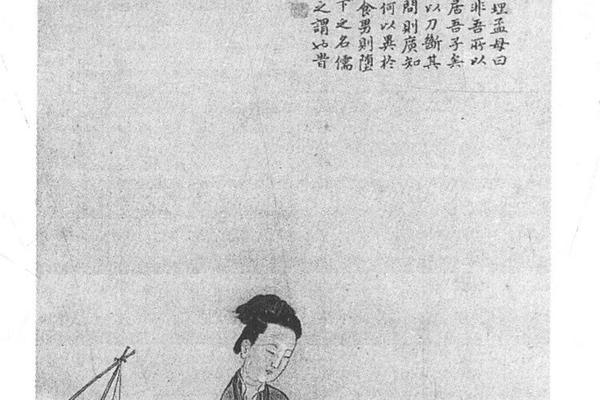 埋孟母曰
非吾所以
居吾子矣
以刀斷其
問則廣知
何以異於
食男則墮
下之名儒
之謂